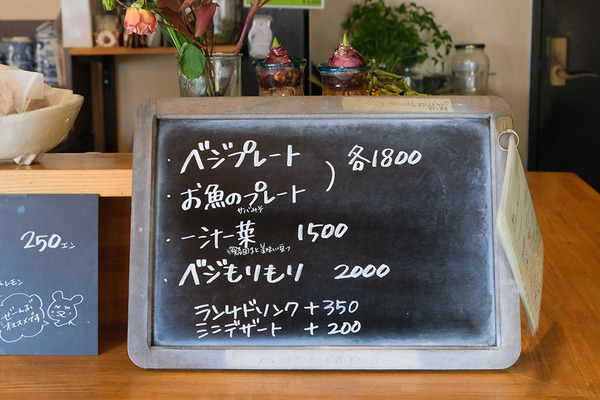 ・ベジプレート
各1800
・お魚のプレート
サバみそ
・一汁一菜 1500
・ベジもりもり 2000
ランチドリンク +350
ミニデザート +200
250エン
レモン
ぜーんぶ
オススメです